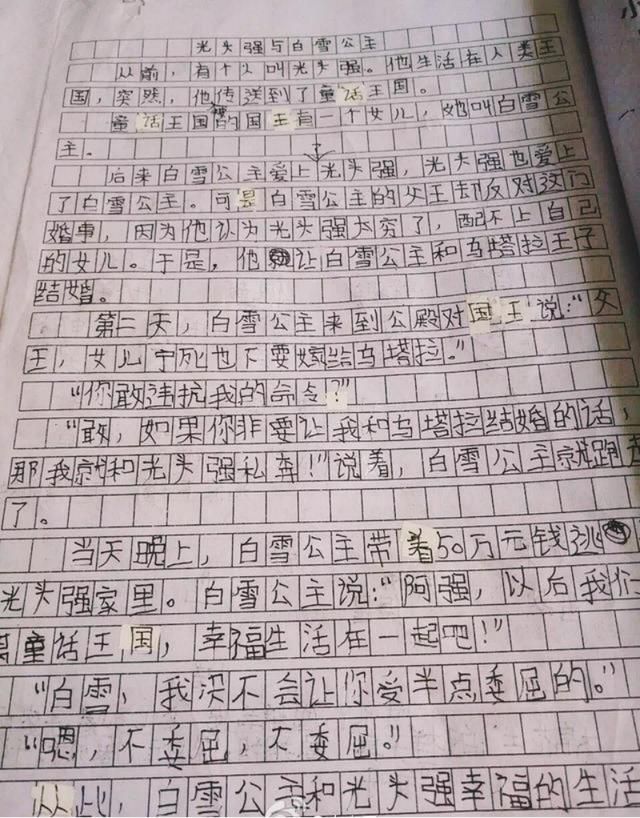 光头强与白雪公主
从前，有个人叫光头强。他生活在人类王
国，突然，他传送到了童话王国。
童话王国的国王有一个女儿，她叫白雪公
主。
后来白雪公主爱上光头强，光头强也爱上
了白雪公主。可是白雪公主的父王却反对这门
婚事，因为他认为光头强太穷了，配不上自己
的女儿。于是，他让白雪公主和乌塔拉王子
结婚。
第二天，白雪公主来到公殿对国王说：“父
王，女儿宁死也不要嫁给乌塔拉。”
“你敢违抗我的命令？”
“敢，如果你非要让我和乌塔拉结婚的话，
那我就和光头强私奔！”说着，白雪公主就跑走
了。
当天晚上，白雪公主带着50万元钱逃
光头强家里。白雪公主说：“阿强，以后我们
离童话王国，幸福生活在一起吧！”
“白雪，我决不会让你受半点委屈的。”
“嗯，不委屈，不委屈。”
从此，白雪公主和光头强幸福的生活